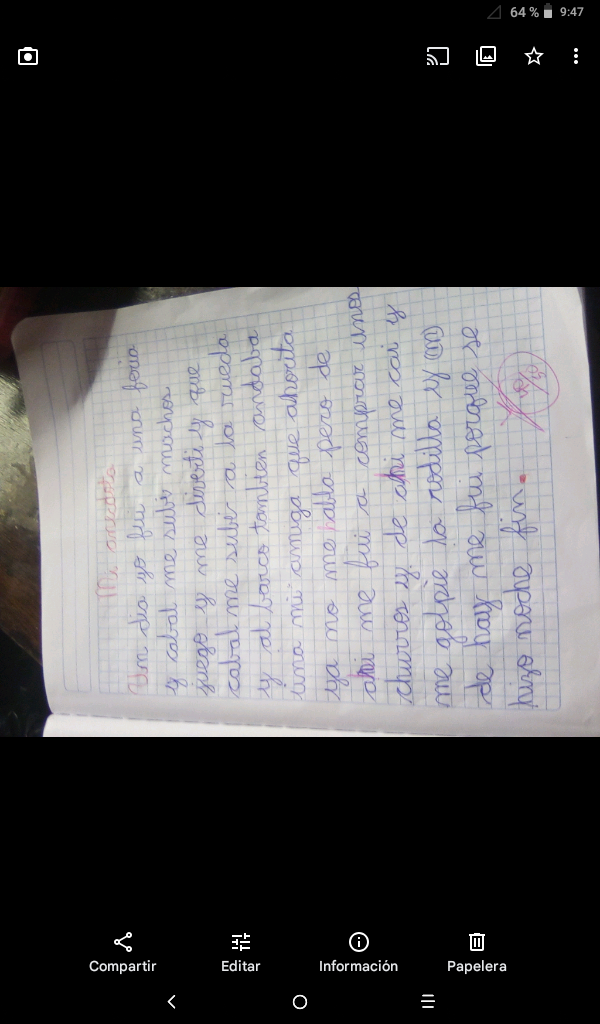 64 % 9:47
Mi anecdota
Un dia yo fui a una feria
y cabal me subi muchos
juego y me diverti y que
cabal me subi a la rueda
y al barco tambien andaba
una mi amiga que ahorita
ya no me habla pero de
ahi me fui a comprar unos
churros y de ahi me cai y
me golpie la rodilla y
de hay me fui porque se
hizo noche fin.
Compartir Editar Información Papelera